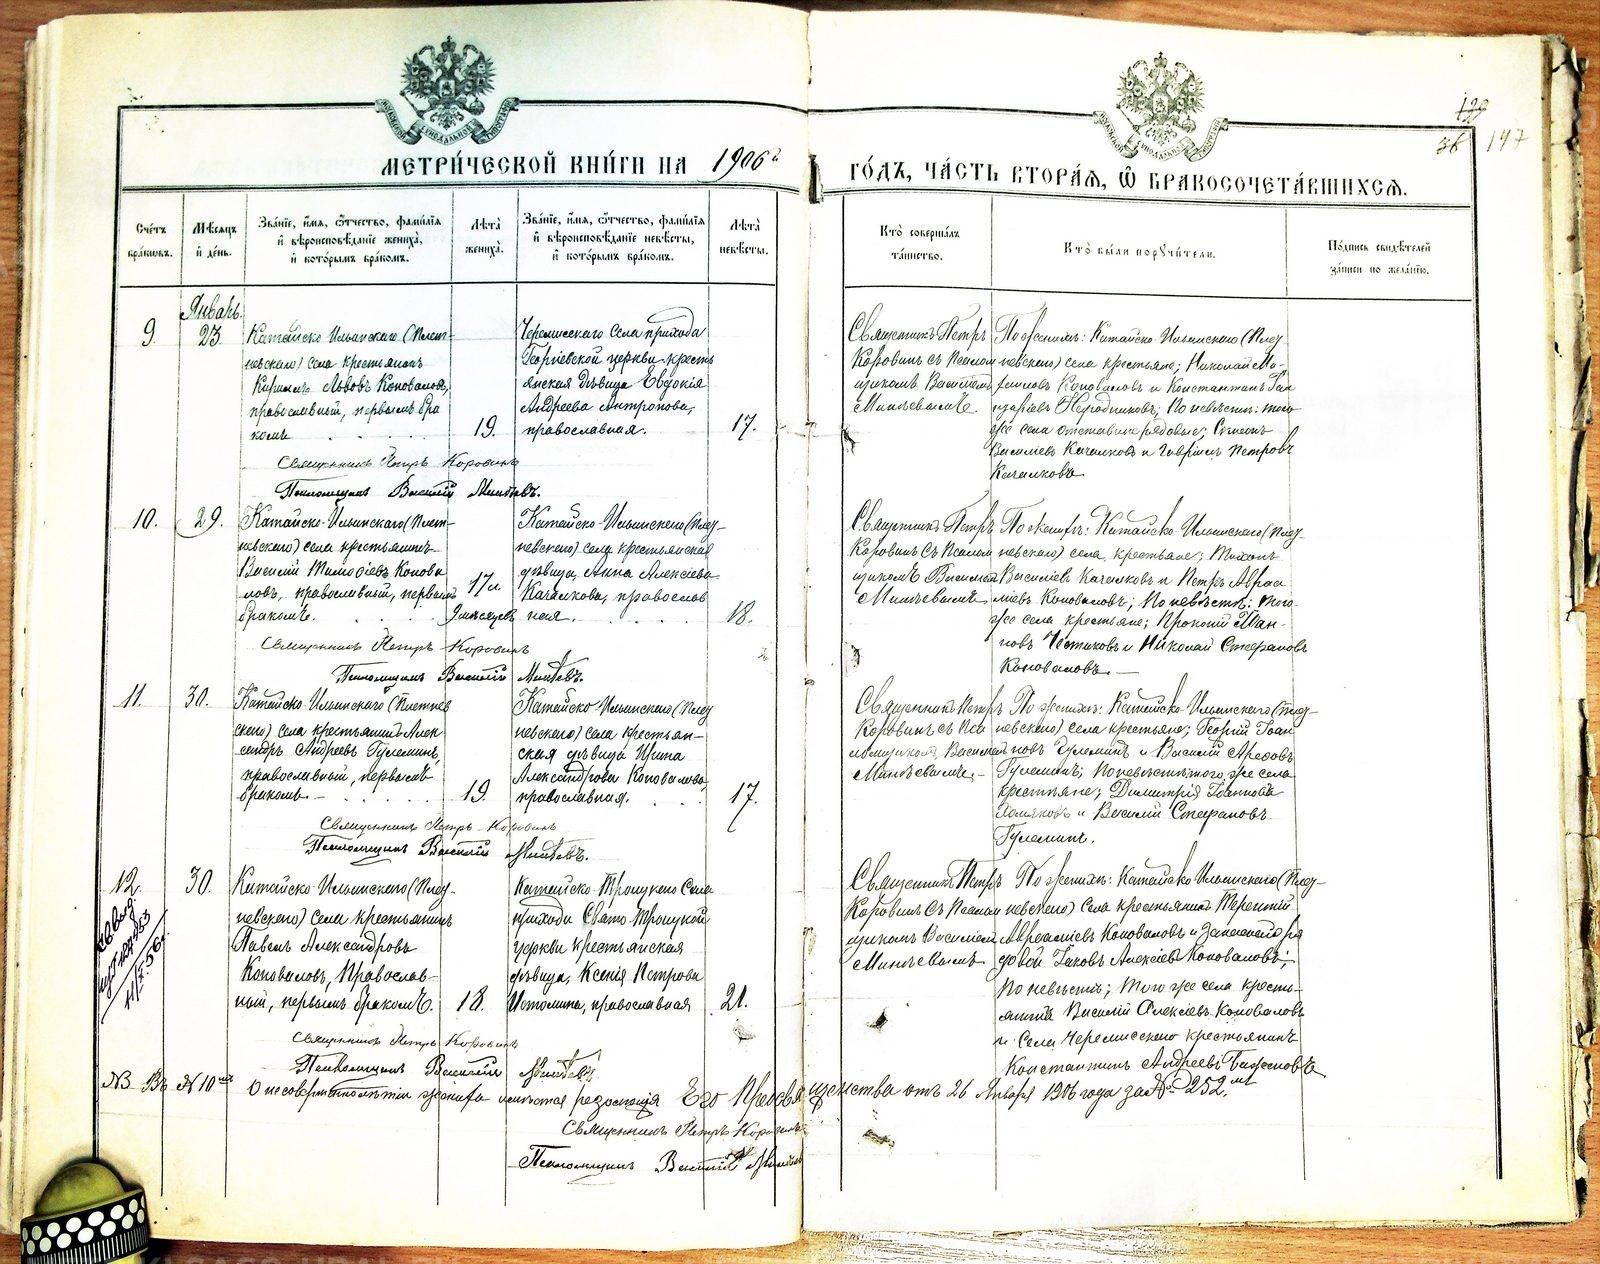 МЕТРИЧЕСКОЙ КНИГИ НА 1906й ГОДЪ, ЧАСТЬ ВТОРАЯ, Ѡ БРАКОСОЧЕТАВШИХСЯ.
129
36 147
Счетъ браковъ.
Мѣсяцъ и день.
Званіе, имя, отчество, фамилія и вѣроисповѣданіе жениха, и которымъ бракомъ.
Лѣта жениха.
Званіе, имя, отчество, фамилія и вѣроисповѣданіе невѣсты, и которымъ бракомъ.
Лѣта невѣсты.
Кто совершалъ таинство.
Кто были поручители.
Подпись свидѣтелей записи по желанію.
Январь.
9.
23.
Катайско-Ильинскаго (Плет-
невскаго) села крестьянинъ
Кириллъ Львовъ Коноваловъ,
православный, первымъ бра
комъ
19.
Черемисскаго села прихода
Георгіевской церкви кресть
янская дѣвица Евдокія
Андреева Антропова,
православная.
17.
Священникъ Петръ
Коровинъ съ Псалом
щикомъ Василіемъ
По женихѣ: Катайско-Ильинскаго (Плет-
невскаго) села крестьяне; Николай
Коноваловъ и Константинъ
По невѣстѣ: того
же села отставные рядовые; Симеонъ
Василіевъ Качалковъ и Гавріилъ Петровъ
Качалковъ
Священникъ Петръ Коровинъ
Псаломщикъ Василій
10.
29.
Катайско-Ильинскаго (Плет-
невскаго) села крестьянинъ
Василій Тимоѳіевъ Конова
ловъ, православный, первымъ
бракомъ.
17 л.
9 мѣсяцевъ
Катайско-Ильинскаго (Плет-
невскаго) села крестьянская
дѣвица, Анна Алексіева
Качалкова, православ
ная.
18.
Священникъ Петръ
Коровинъ съ Псалом
щикомъ Василіемъ
По женихѣ: Катайско-Ильинскаго (Плет-
невскаго) села крестьяне; Тихонъ
Василіевъ Качалковъ и Петръ Авраа
міевъ Коноваловъ; По невѣстѣ: того-
же села крестьяне; Прокопій
и Николай Стефановъ
Коноваловъ.
Священникъ Петръ Коровинъ
Псаломщикъ Василій
11.
30.
Катайско-Ильинскаго (Плетнев
скаго) села крестьянинъ Алек
сандръ Андреевъ Гулеминъ,
православный, первымъ
бракомъ.
19.
Катайско-Ильинскаго (Плет
невскаго) села крестьян-
ская дѣвица Ирина
Александрова Коновалова,
православная.
17.
Священникъ Петръ
Коровинъ съ Пса
ломщикомъ Василіемъ
По женихѣ: Катайско-Ильинскаго (Плет-
невскаго) села крестьяне; Георгій Іоан
новъ Гулеминъ и Василій
Гулеминъ; По невѣстѣ: того же села
крестьяне; Димитрій Іоанновъ
Хомяковъ и Василій Стефановъ
Гулеминъ.
Священникъ Петръ Коровинъ
Псаломщикъ Василій
12.
30.
Катайско-Ильинскаго (Плет-
невскаго) села крестьянинъ
Павелъ Александровъ
Коноваловъ, Православ-
ный, первымъ бракомъ.
18.
Катайско-Троицкаго Села
прихода Свято Троицкой
церкви крестьянская
дѣвица, Ксенія Петрова
Истомина, православная
21.
Священникъ Петръ
Коровинъ съ Псалом
щикомъ Василіемъ
По женихѣ: Катайско-Ильинскаго (Плет-
невскаго) Села крестьянинъ Терентій
Авраамíевъ Коноваловъ и Запасной ря
довой Іаковъ Алексіевъ Коноваловъ;
По невѣстѣ; Того же села кресть-
янинъ Василій Алексіевъ Коноваловъ
и Села Черемисскаго крестьянинъ
Константинъ Андреевъ
Священникъ Петръ Коровинъ
Псаломщикъ Василій
NB Въ № 10мъ О несовершеннолѣтіи жениха имѣется резолюція Его Преосвященства отъ 26 Января 1906 года за № 252.мъ
Священникъ Петръ Коровинъ
Псаломщикъ Василій